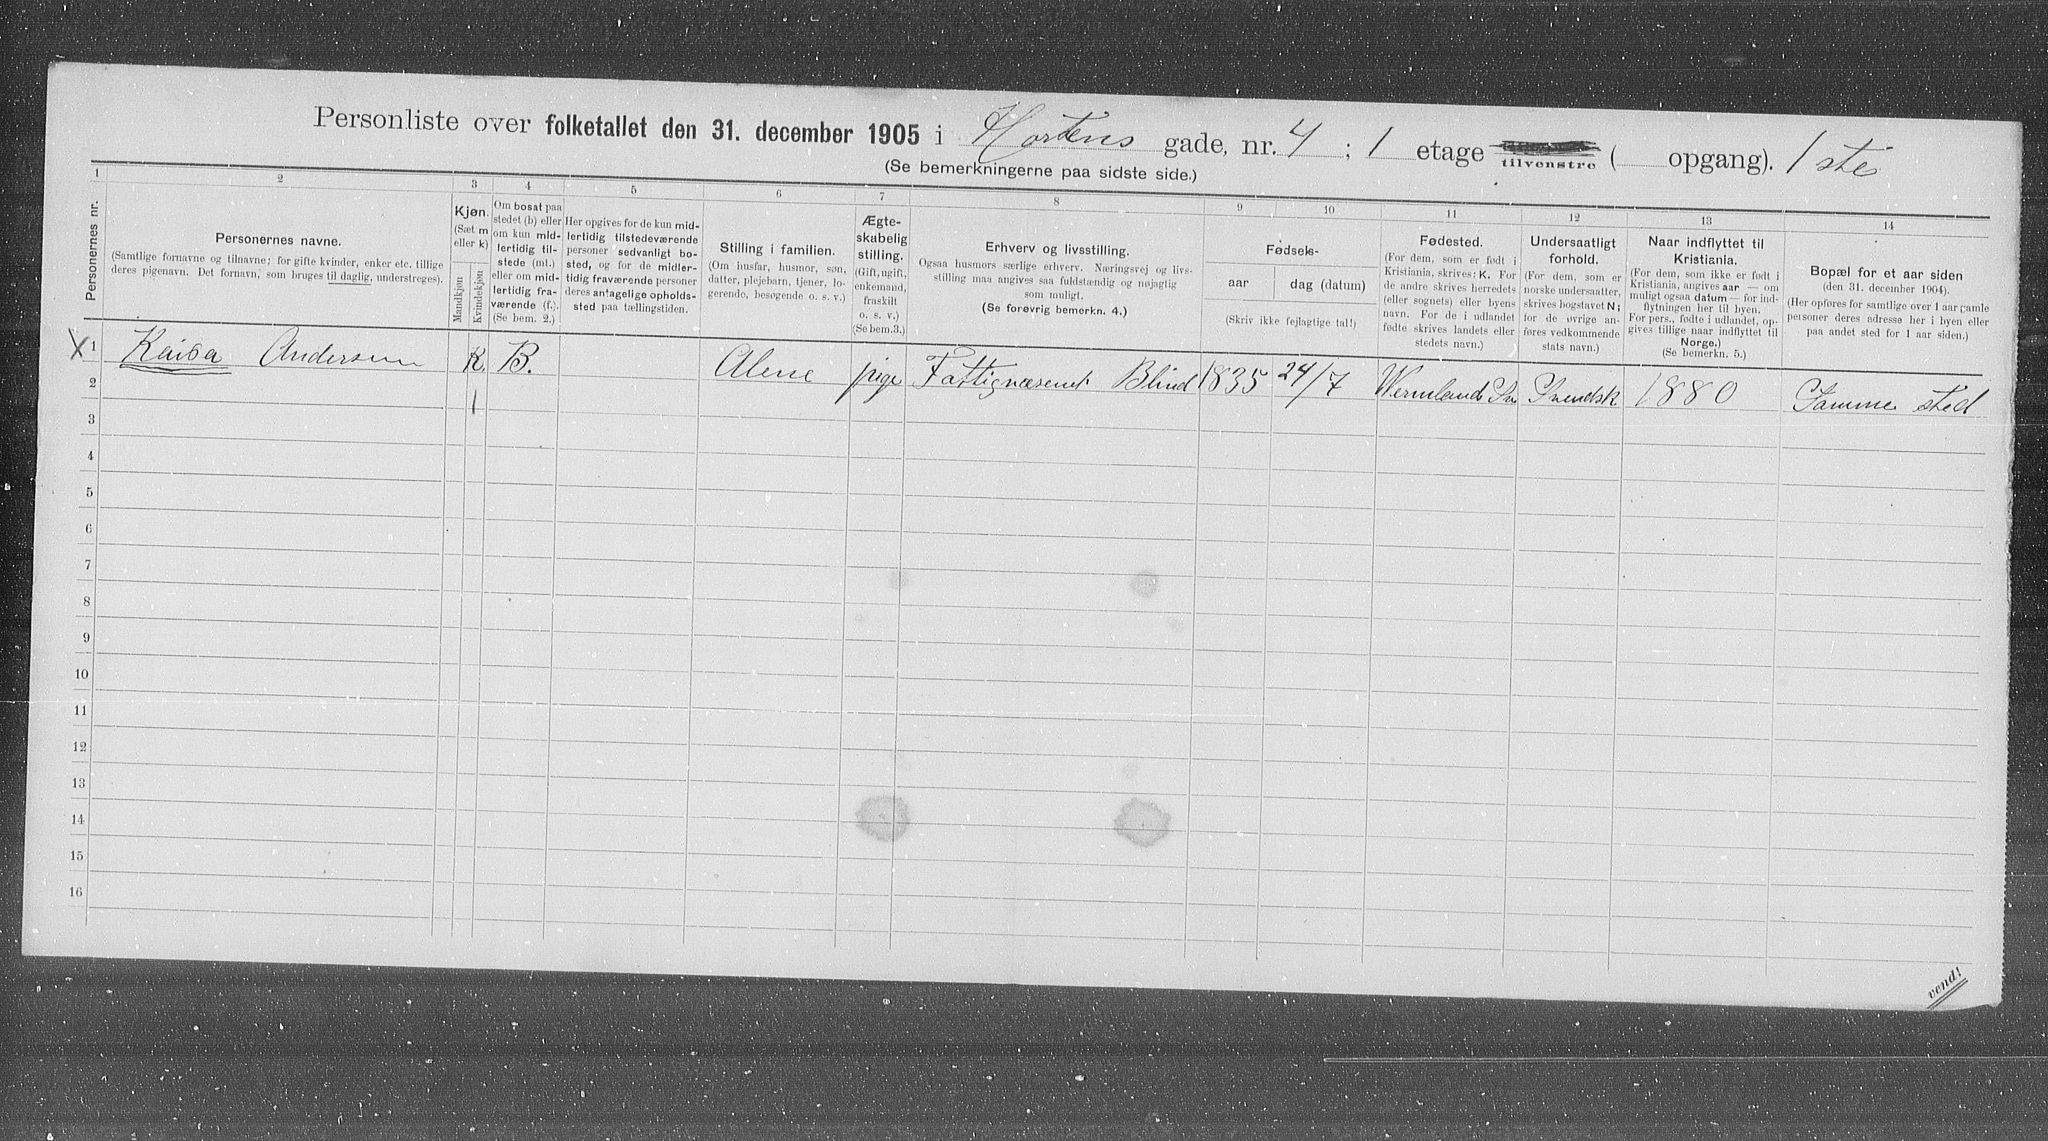 Personliste over folketallet den 31. december 1905 i Hortens gade, nr. 4 ; 1 etage tilvenstre ( opgang). 1ste
(Se bemerkningerne paa sidste side.)
1 2 3 4 5 6 7 8 9 10 11 12 13 14
Personernes nr.
Personernes navne.
(Samtlige fornavne og tilnavne; for gifte kvinder, enker etc. tillige
deres pigenavn. Det fornavn, som bruges til daglig, understreges).
Kjøn.
(Sæt m
eller k)
Mandkjøn
Kvindekjøn
Om bosat paa
stedet (b) eller
om kun mid-
lertidig til-
stede (mt.)
eller om mid-
lertidig fra-
værende (f.).
(Se bem. 2.)
Her opgives for de kun mid-
lertidig tilstedeværende
personer sedvanligt bo-
sted, og for de midler-
tidig fraværende personer
deres antagelige opholds-
sted paa tællingstiden.
Stilling i familien.
(Om husfar, husmor, søn,
datter, plejebarn, tjener, lo-
gerende, besøgende o. s. v.)
Ægte-
skabelig
stilling.
(Gift, ugift,
enkemand,
fraskilt
o. s. v.)
(Se bem. 3.)
Erhverv og livsstilling.
Ogsaa husmors særlige erhverv. Næringsvej og livs-
stilling maa angives saa fuldstændig og nøjagtig
som muligt.
(Se forøvrig bemerkn. 4.)
Fødsels-
aar
dag (datum)
(Skriv ikke fejlagtige tal!)
Fødested.
(For dem, som er født i
Kristiania, skrives: K. For
de andre skrives herredets
(eller sognets) eller byens
navn. For de i udlandet
fødte skrives landets eller
stedets navn.)
Undersaatligt
forhold.
(For dem, som er
norske undersaatter,
skrives bogstavet N;
for de øvrige an-
føres vedkommende
stats navn.)
Naar indflyttet til
Kristiania.
(For dem, som ikke er født i
Kristiania, angives aar — om
muligt ogsaa datum — for ind-
flytningen her til byen.
For pers., fødte i udlandet, op-
gives tillige naar indflyttet til
Norge.)
(Se bemerkn. 5.)
Bopæl for et aar siden
(den 31. december 1904).
(Her opføres for samtlige over 1 aar gamle
personer deres adresse her i byen eller
paa andet sted for 1 aar siden.)
X 1 Kaisa Andersen K. B. Alene pige Fattignæsent Blind 1835 24/7 Wermland Sv Svendsk 1880 Samme sted
2 1
3
4
5
6
7
8
9
10
11
12
13
14
15
16
vend!